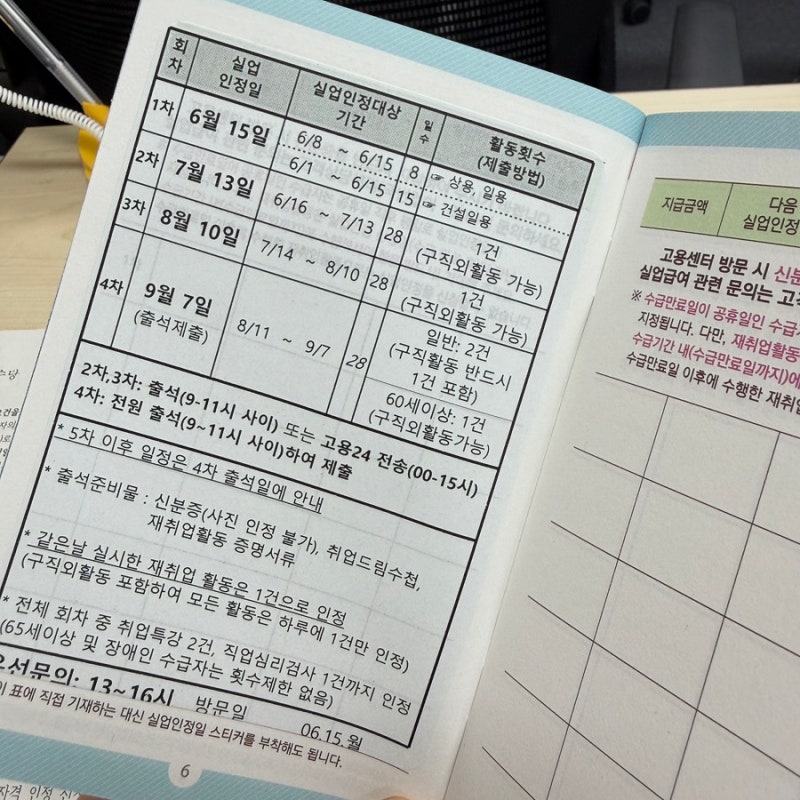 회차 실업인정일 실업인정대상기간 일수 활동횟수(제출방법)
1차 6월 15일 6/8 ~ 6/15 8 ☞ 상용, 일용
6/1 ~ 6/15 15 ☞ 건설일용
2차 7월 13일 6/16 ~ 7/13 28 1건
(구직외활동 가능)
3차 8월 10일 7/14 ~ 8/10 28 1건
(구직외활동 가능)
4차 9월 7일
(출석제출)
8/11 ~ 9/7 28
일반: 2건
(구직활동 반드시
1건 포함)
60세이상: 1건
(구직외활동가능)
2차,3차: 출석(9-11시 사이) 또는 고용24 전송(00-15시)
4차: 전원 출석(9~11시 사이)하여 제출
* 5차 이후 일정은 4차 출석일에 안내
* 출석준비물 : 신분증(사진 인정 불가), 취업드림수첩,
재취업활동 증명서류
* 같은날 실시한 재취업 활동은 1건으로 인정
(구직외활동 포함하여 모든 활동은 하루에 1건만 인정)
* 전체 회차 중 취업특강 2건, 직업심리검사 1건까지 인정
(65세이상 및 장애인 수급자는 횟수제한 없음)
유선문의: 13~16시 방문일 06.15.월
이 표에 직접 기재하는 대신 실업인정일 스티커를 부착해도 됩니다.
6
지급금액
다음
실업인정
고용센터 방문 시 신분
실업급여 관련 문의는 고
※ 수급만료일이 공휴일인 수급
지정됩니다. 다만, 재취업활동
수급기간 내(수급만료일까지)에
수급만료일 이후에 수행한 재취업